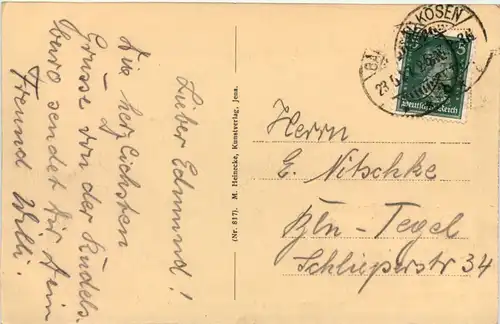 Lieber Edmund!
Die herzlichsten
Grüsse von der Rudels-
burg sendet dir dein
Freund Willi!
(Nr. 817). M. Heinecke, Kunstverlag, Jena.
BAD KÖSEN
5
Deutsches Reich
Herrn
E. Nitschke
Bln-Tegel
Schlieperstr 34